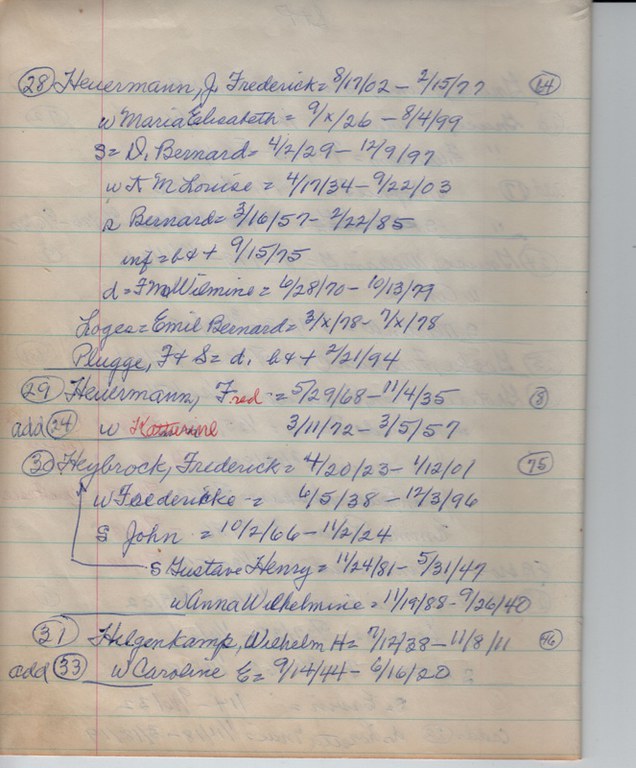 28 Heuermann, J. Frederick = 8/17/02 - 2/15/77 64
w Maria Elisabeth = 9/x/26 - 8/4/99
S = D. Bernard = 4/2/29 - 12/9/97
w A M Louise = 4/17/34 - 9/22/03
s Bernard = 3/16/57 - 2/22/85
inf = b & + 9/15/75
d = F M Wilmine = 6/28/70 - 10/13/79
Loges = Emil Bernard = 3/x/78 - 7/x/78
Plugge, F & S = d, b & + 2/21/94
29 Heuermann, Fred = 5/29/68 - 11/4/35 8
add 24 w Katherine 3/11/72 - 3/5/57
30 Heybrock, Frederick = 4/20/23 - 4/12/01 75
w Fredericke = 6/5/38 - 12/3/96
S John = 10/2/66 - 11/2/24
S Gustave Henry = 11/24/81 - 5/31/47
w Anna Wilhelmine = 11/19/88 - 9/26/40
31 Hilgenkamp, Wilhelm H = 7/12/38 - 11/8/11 46
add 33 w Caroline E = 9/14/44 - 6/16/20